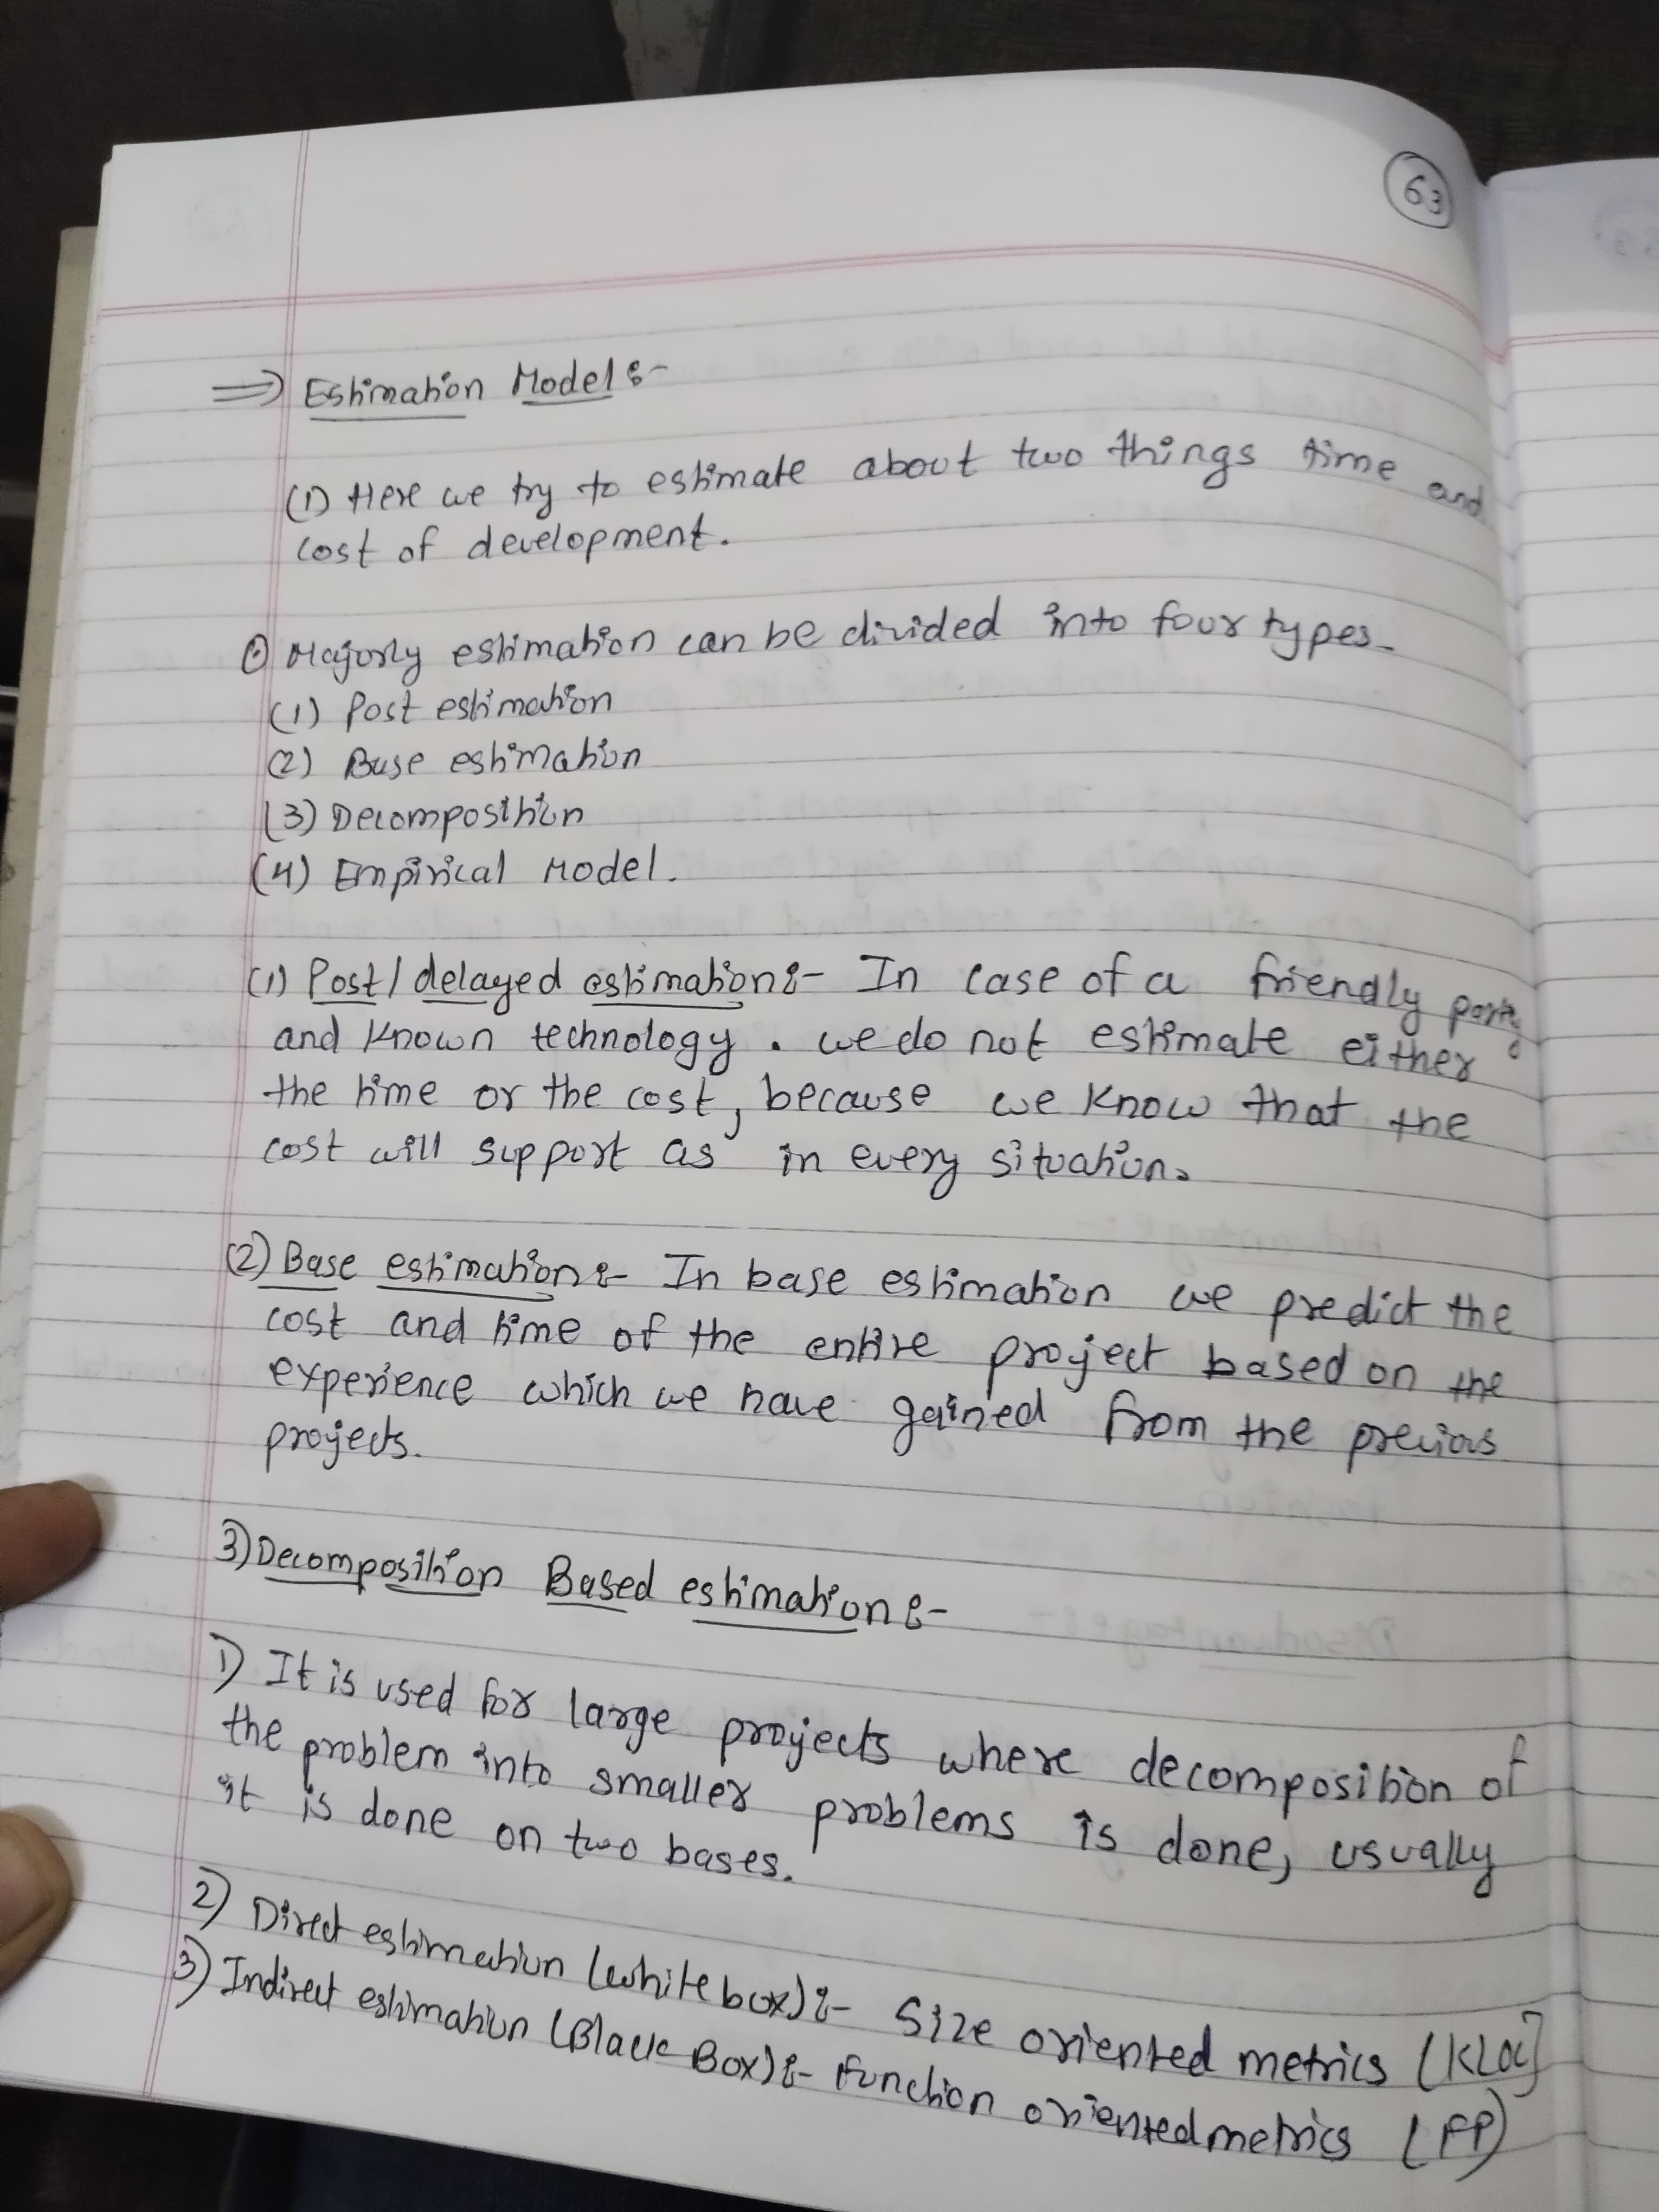 63
⇒ Estimation Model :-
(1) Here we try to estimate about two things time and
cost of development.
⊙ Majorly estimation can be divided into four types-
(1) Post estimation
(2) Base estimation
(3) Decomposition
(4) Empirical Model.
(1) Post / delayed estimation :- In case of a friendly party
and known technology. we do not estimate either
the time or the cost, because we know that the
cost will support as in every situation.
(2) Base estimation :- In base estimation we predict the
cost and time of the entire project based on the
experience which we have gained from the previous
projects.
3) Decomposition Based estimation :-
1) It is used for large projects where decomposition of
the problem into smaller problems is done, usually
it is done on two bases.
2) Direct estimation (white box) :- Size oriented metrics (KLOC)
3) Indirect estimation (Black Box) :- Function oriented metrics (FP)